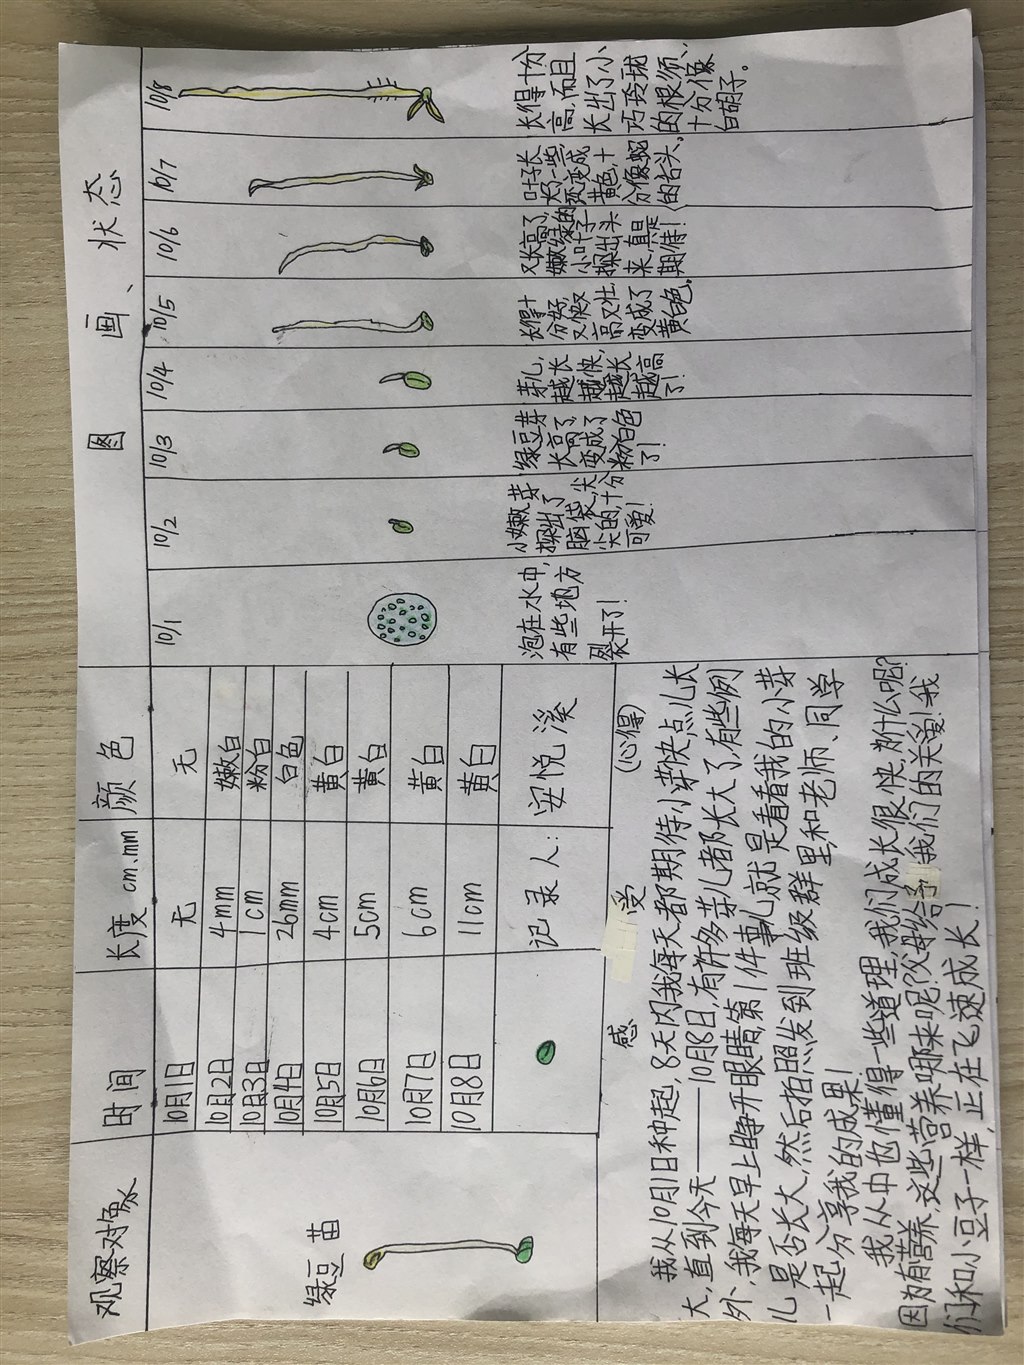 观察对象 时间 长度 cm.mm 颜色 图画、状态
绿豆苗
10月1日 无 无
10月2日 4mm 嫩白
10月3日 1cm 粉白
10月4日 26mm 白色
10月5日 4cm 黄白
10月6日 5cm 黄白
10月7日 6cm 黄白
10月8日 11cm 黄白
记录人: 安悦溪
10/1 10/2 10/3 10/4 10/5 10/6 10/7 10/8
泡在水中,
有些地方
裂开了!
小嫩芽
探出了
脑袋,尖
尖的,十分
可爱!
绿豆芽
长高了,
变成了
粉白色
了!
芽儿,
越长
越快,
越长
越高
了!
长得十
分好,
又快又
高又壮
变成了
黄白色,
又长高了,
嫩绿的
小叶子
探出头
来,真是
期待!
叶子长
大一些,
变成
黄色,十
分像蛇
的舌头,
长得十分
高,而且
长出了小
巧玲珑
的根须,
十分像
白胡子。
感受(心得)
我从10月1日种起,8天内我每天都期待小芽快点儿长
大,直到今天——10月8日,有许多芽儿都长大了,有些例
外,我每天早上睁开眼睛第1件事儿就是看看我的小芽
儿是否长大,然后拍照发到班级群里,和老师、同学
一起分享我的成果!
我从中也懂得一些道理,我们成长很快,为什么呢?
因为有营养,这些营养哪来呢?父母给予我们的关爱!我
们和小豆子一样,正在飞速成长!